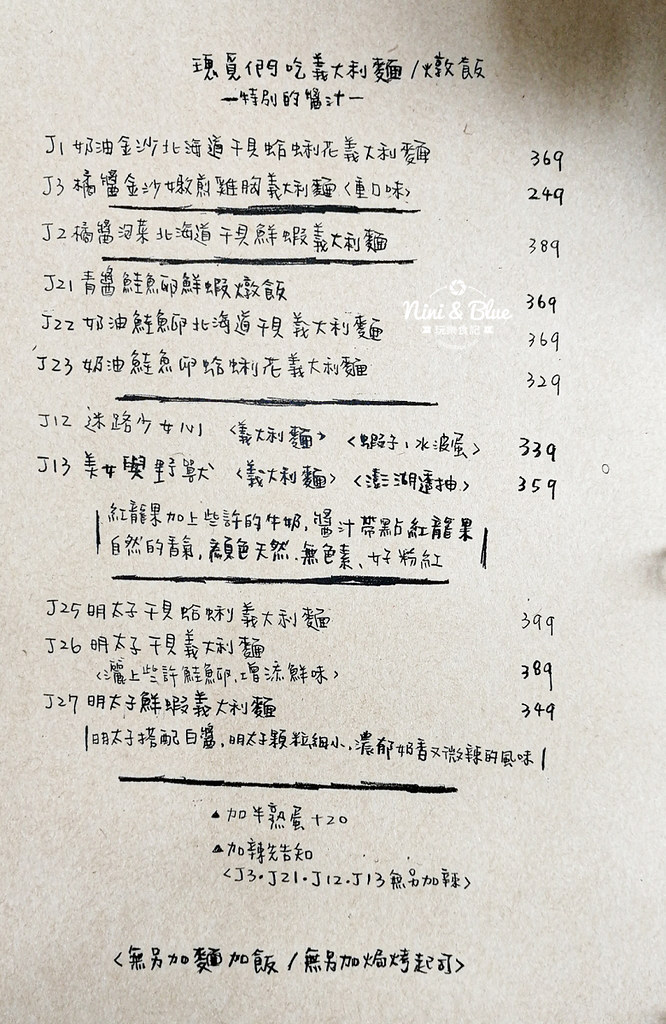 現覓們吃義大利麵/燉飯
—特別的醬汁—
J1 奶油金沙北海道干貝蛤蜊花義大利麵 369
J3 橘醬金沙嫩煎雞胸義大利麵〈重口味〉 249
J2 橘醬泡菜北海道干貝鮮蝦義大利麵 389
J21 青醬鮭魚卵鮮蝦燉飯 369
Nini & Blue
玩樂食記
J22 奶油鮭魚卵北海道干貝義大利麵 369
J23 奶油鮭魚卵蛤蜊花義大利麵 329
J12 迷路少女心 〈義大利麵〉 〈蝦子、水波蛋〉 339
J13 美女與野獸 〈義大利麵〉 〈澎湖透抽〉 359
紅龍果加上些許的牛奶,醬汁帶點紅龍果
自然的香氣,顏色天然.無色素、好粉紅
J25 明太子干貝蛤蜊義大利麵 399
J26 明太子干貝義大利麵
〈灑上些許鮭魚卵,增添鮮味〉 389
J27 明太子鮮蝦義大利麵 349
明太子搭配白醬,明太子顆粒細小,濃郁奶香又微辣的風味
▲加半熟蛋+20
▲加辣先告知
〈J3.J21.J12.J13無另加辣〉
〈無另加麵加飯/無另加焗烤起司〉